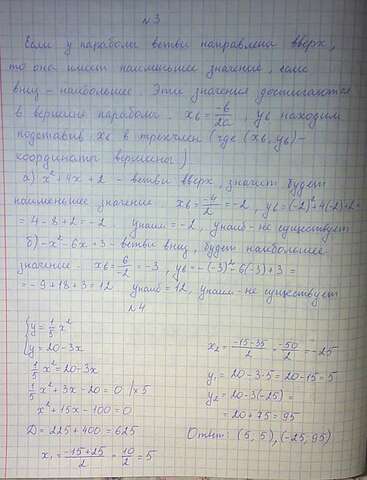 №3
Если у параболы ветви направлены вверх,
то она имеет наименьшее значение, если
вниз - наибольшее. Эти значения достигаются
в вершине параболы. xв = -b/2a, yв находим
подставив xв в трехчлен (где (xв, yв) -
координаты вершины)
а) x²+4x+2 - ветви вверх, значит будет
наименьшее значение xв = -4/2 = -2, yв = (-2)²+4(-2)+2=
= 4-8+2 = -2 yнаим = -2, yнаиб - не существует
б) -x²-6x+3 - ветви вниз, будет наибольшее
значение. xв = 6/-2 = -3, yв = -(-3)²-6(-3)+3 =
= -9+18+3 = 12 yнаиб = 12, yнаим - не существует
№4
{y = 1/5 x²
{y = 20-3x
1/5 x² = 20-3x
1/5 x²+3x-20 = 0 / ×5
x²+15x-100 = 0
D = 225+400 = 625
x₁ = -15+25/2 = 10/2 = 5
x₂ = -15-35/2 = -50/2 = -25
y₁ = 20-3·5 = 20-15 = 5
y₂ = 20-3(-25) =
= 20+75 = 95
Ответ: (5, 5), (-25, 95)